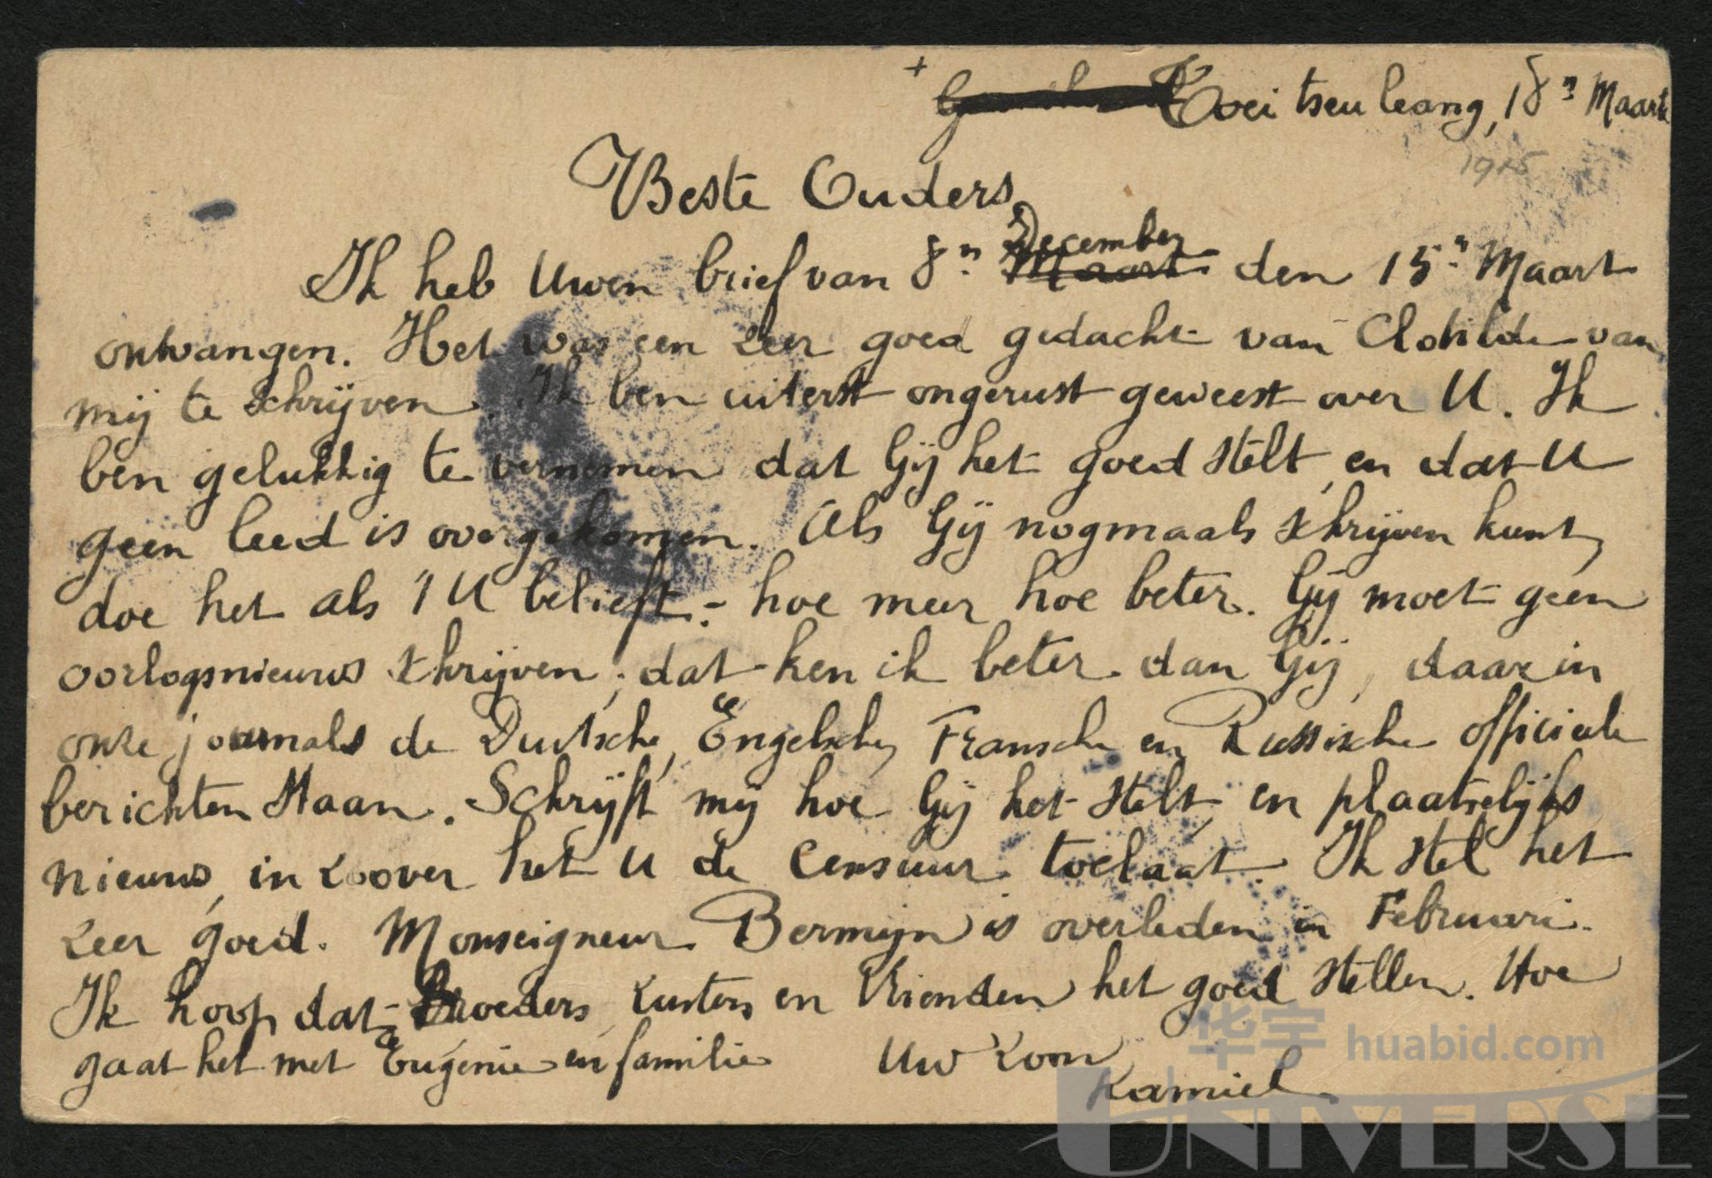 +
Koei tseu leang, 18n Maart
1915
Beste Ouders,
December
Ik heb Uwen brief van 8n Maart den 15n Maart
ontvangen. Het was een zeer goed gedacht van Clotilde van
mij te schrijven. Ik ben uiterst ongerust geweest over U. Ik
ben gelukkig te vernemen dat Gij het goed stelt, en dat U
geen leed is overgekomen. Als Gij nogmaals schrijven kunt,
doe het als 't U belieft - hoe meer hoe beter. Gij moet geen
oorlogsnieuws schrijven; dat ken ik beter dan Gij, daar in
onze journals de Duitsche, Engelsche, Fransche en Russische officieele
berichten staan. Schrijft mij hoe Gij het stelt, en plaatselijks
nieuws, in zoover het U de censuur toelaat. Ik stel het
zeer goed. Monseigneur Bermijn is overleden in Februari.
Ik hoop dat Broeders, zusters en Vrienden het goed stellen. Hoe
gaat het met Eugenie en familie Uw zoon
Kamiel
华宇 huabid.com
UNIVERSE